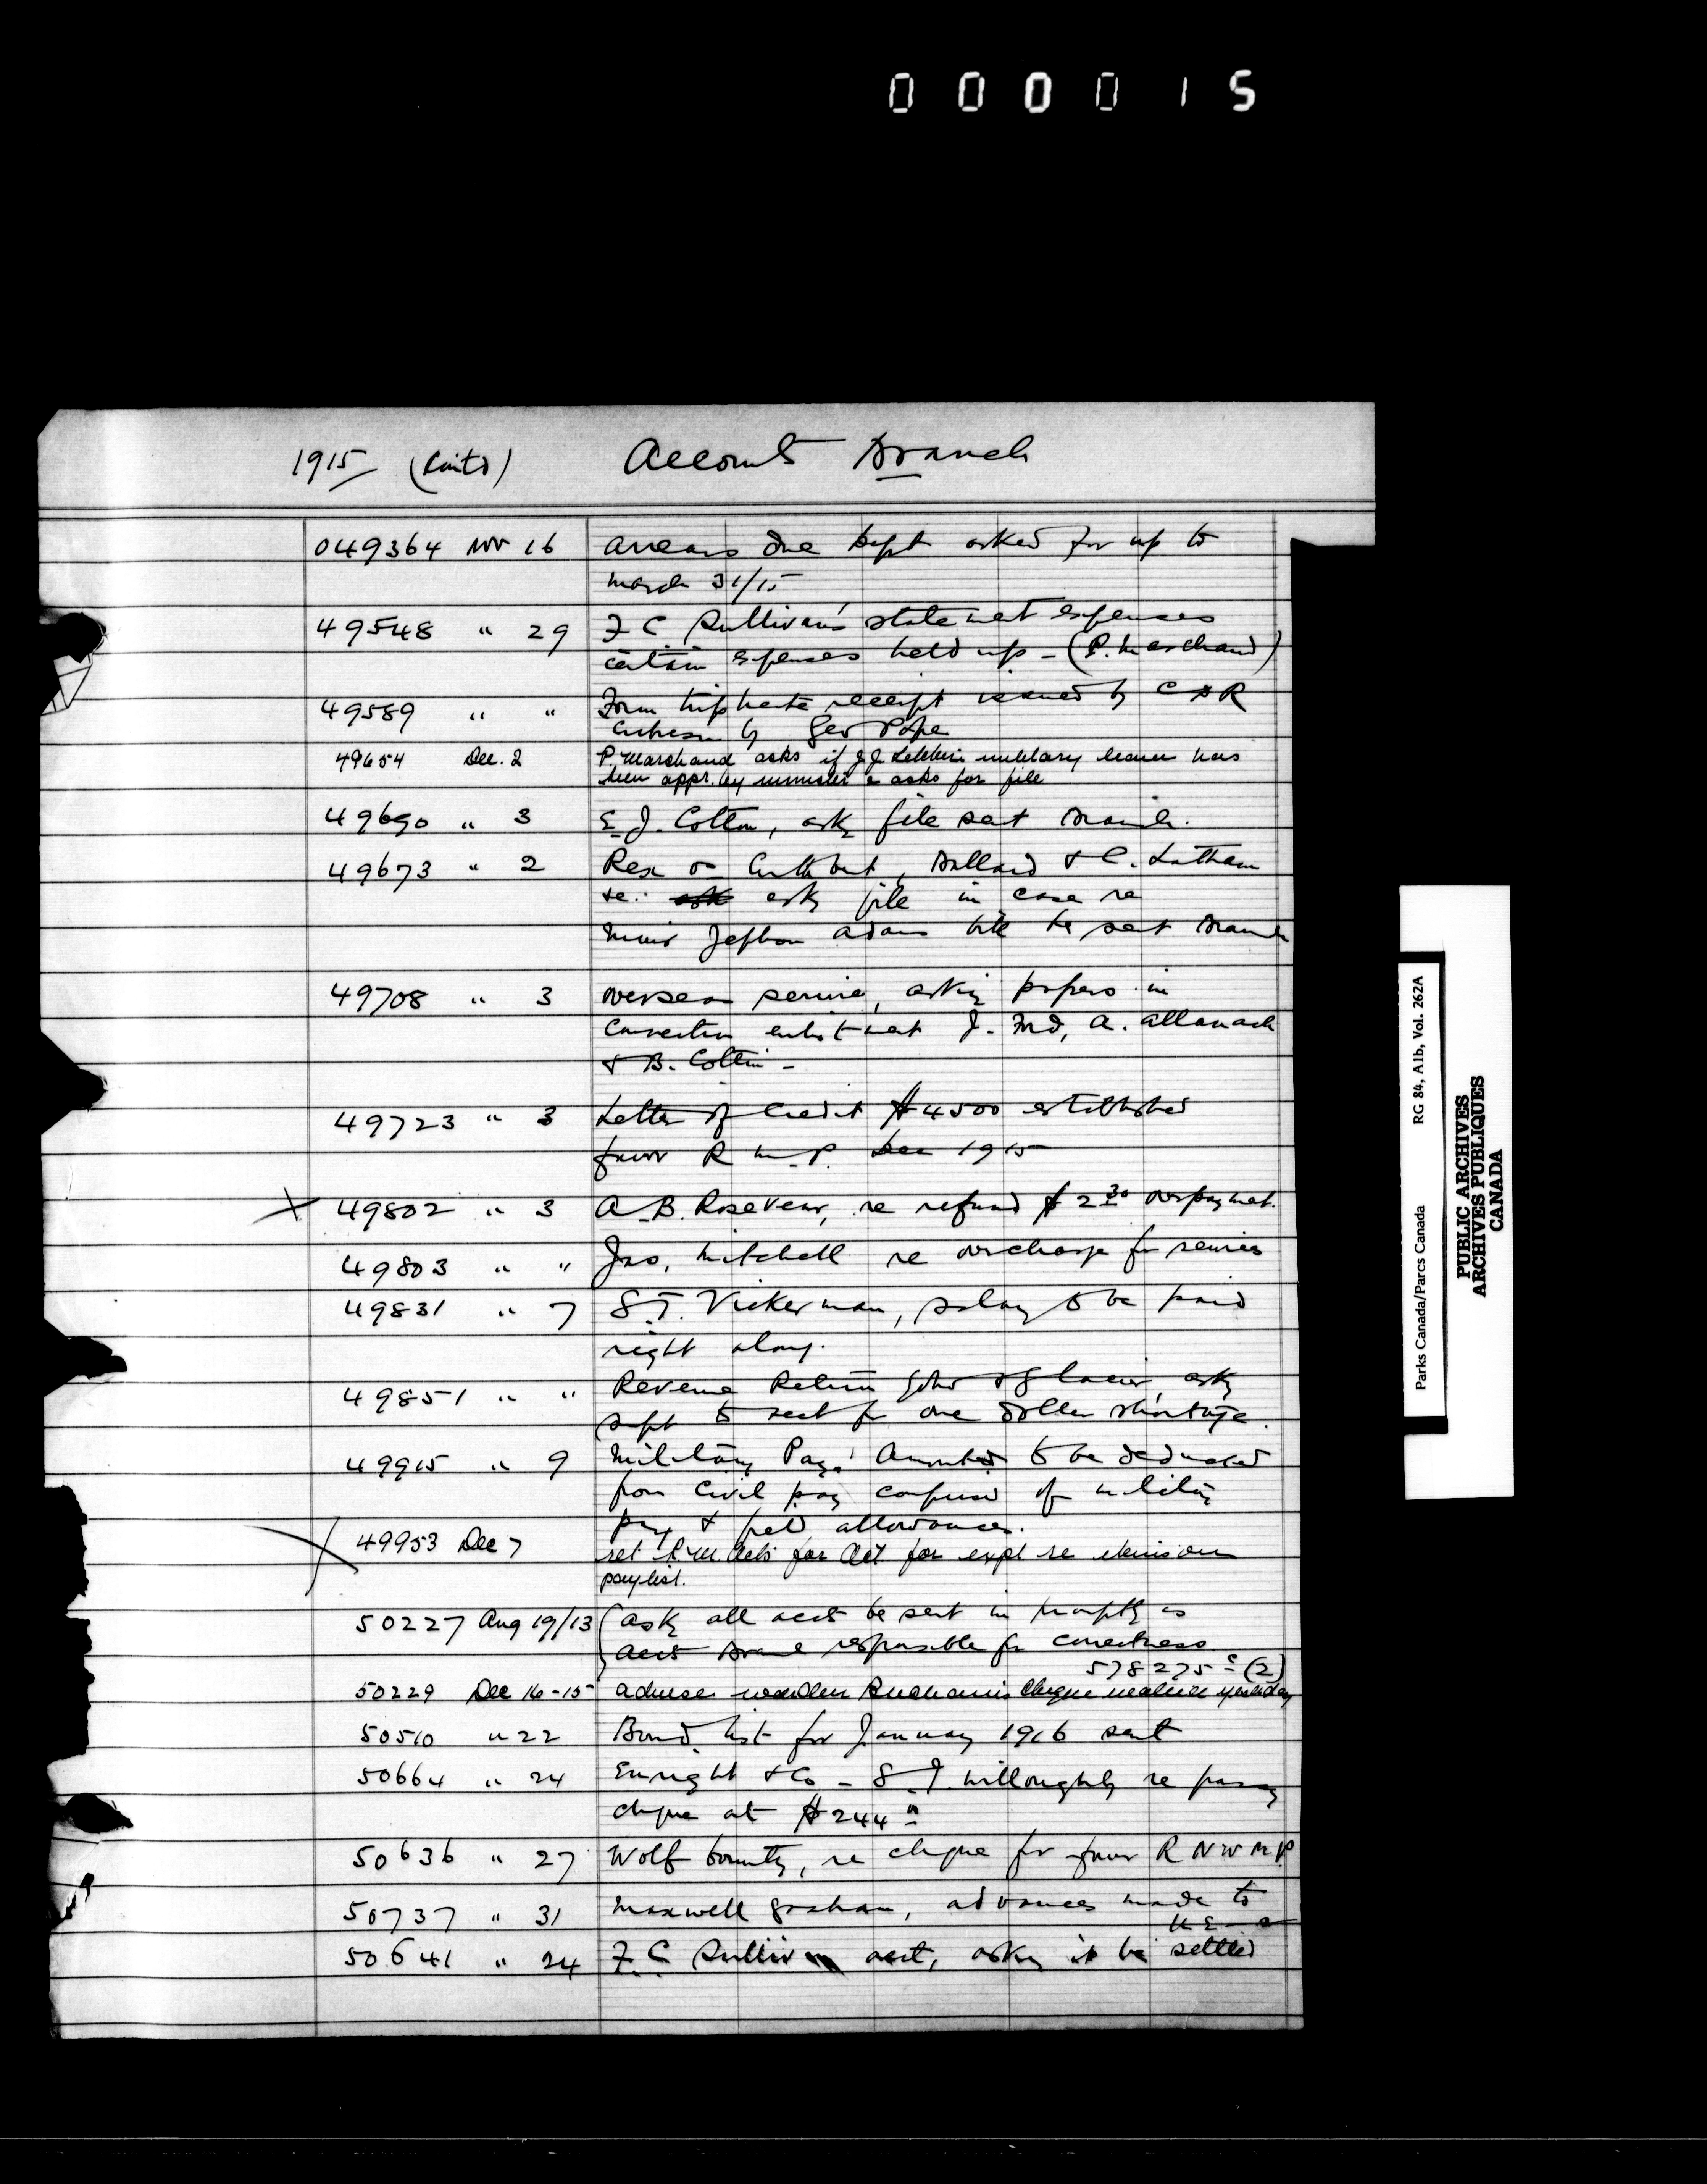 000015
1915 (Cont'd) Accounts Branch
049364 Nov 16 Arrears due Dept asked for up to
March 31/15
49548 " 29 F C Sullivan's statement expenses
certain expenses held up - (P. Marchand)
49589 " " Form triplicate receipt issued by
by Geo Pope
49654 Dec. 2 P. Marchand asks if J J military leave has
been appr. by minister & asks for file
49690 " 3 E J. Cotton, ask file sent Branch.
49673 " 2 Rex vs Cuthbert, & C. Latham
ask file in case re
Adams be sent Branch
49708 " 3 Overseas service, asking papers in
connection enlistment J. Ford, A. Allanach
& B. Cottin -
49723 " 3 Letter of Credit $4500 established
favor R M P. Dec 1915
49802 " 3 A B. Rosevear, re refund $2.30 overpayment.
49803 " " Jno. Mitchell re overcharge for services
49831 " 7 S T. Vickerman, salary to be paid
right along.
49851 " " Revenue Return Yoho & Glacier, ask
Supt to for one dollar shortage.
49915 " 9 Military Pay. Amounts to be deducted
from Civil pay composed of military
pay & field allowances.
49953 Dec 7 for expl re
paylist.
50227 Aug 19/13 Ask all accts be sent in promptly as
Accts Branch responsible for correctness
578275 (2)
50229 Dec 16-15 Advises Warden cheque mailed yesterday
50510 " 22 Bond list for January 1916 sent
50664 " 24 Enright & Co - S J. Willoughby re
cheque at $244
50636 " 27 Wolf bounty, re cheque for favor R N W M P.
50737 " 31 Maxwell Graham, advances made to
50641 " 24 F. C. Sullivan acct, asking it be settled
Parks Canada/Parcs Canada RG 84, A1b, Vol. 262A
PUBLIC ARCHIVES
ARCHIVES PUBLIQUES
CANADA